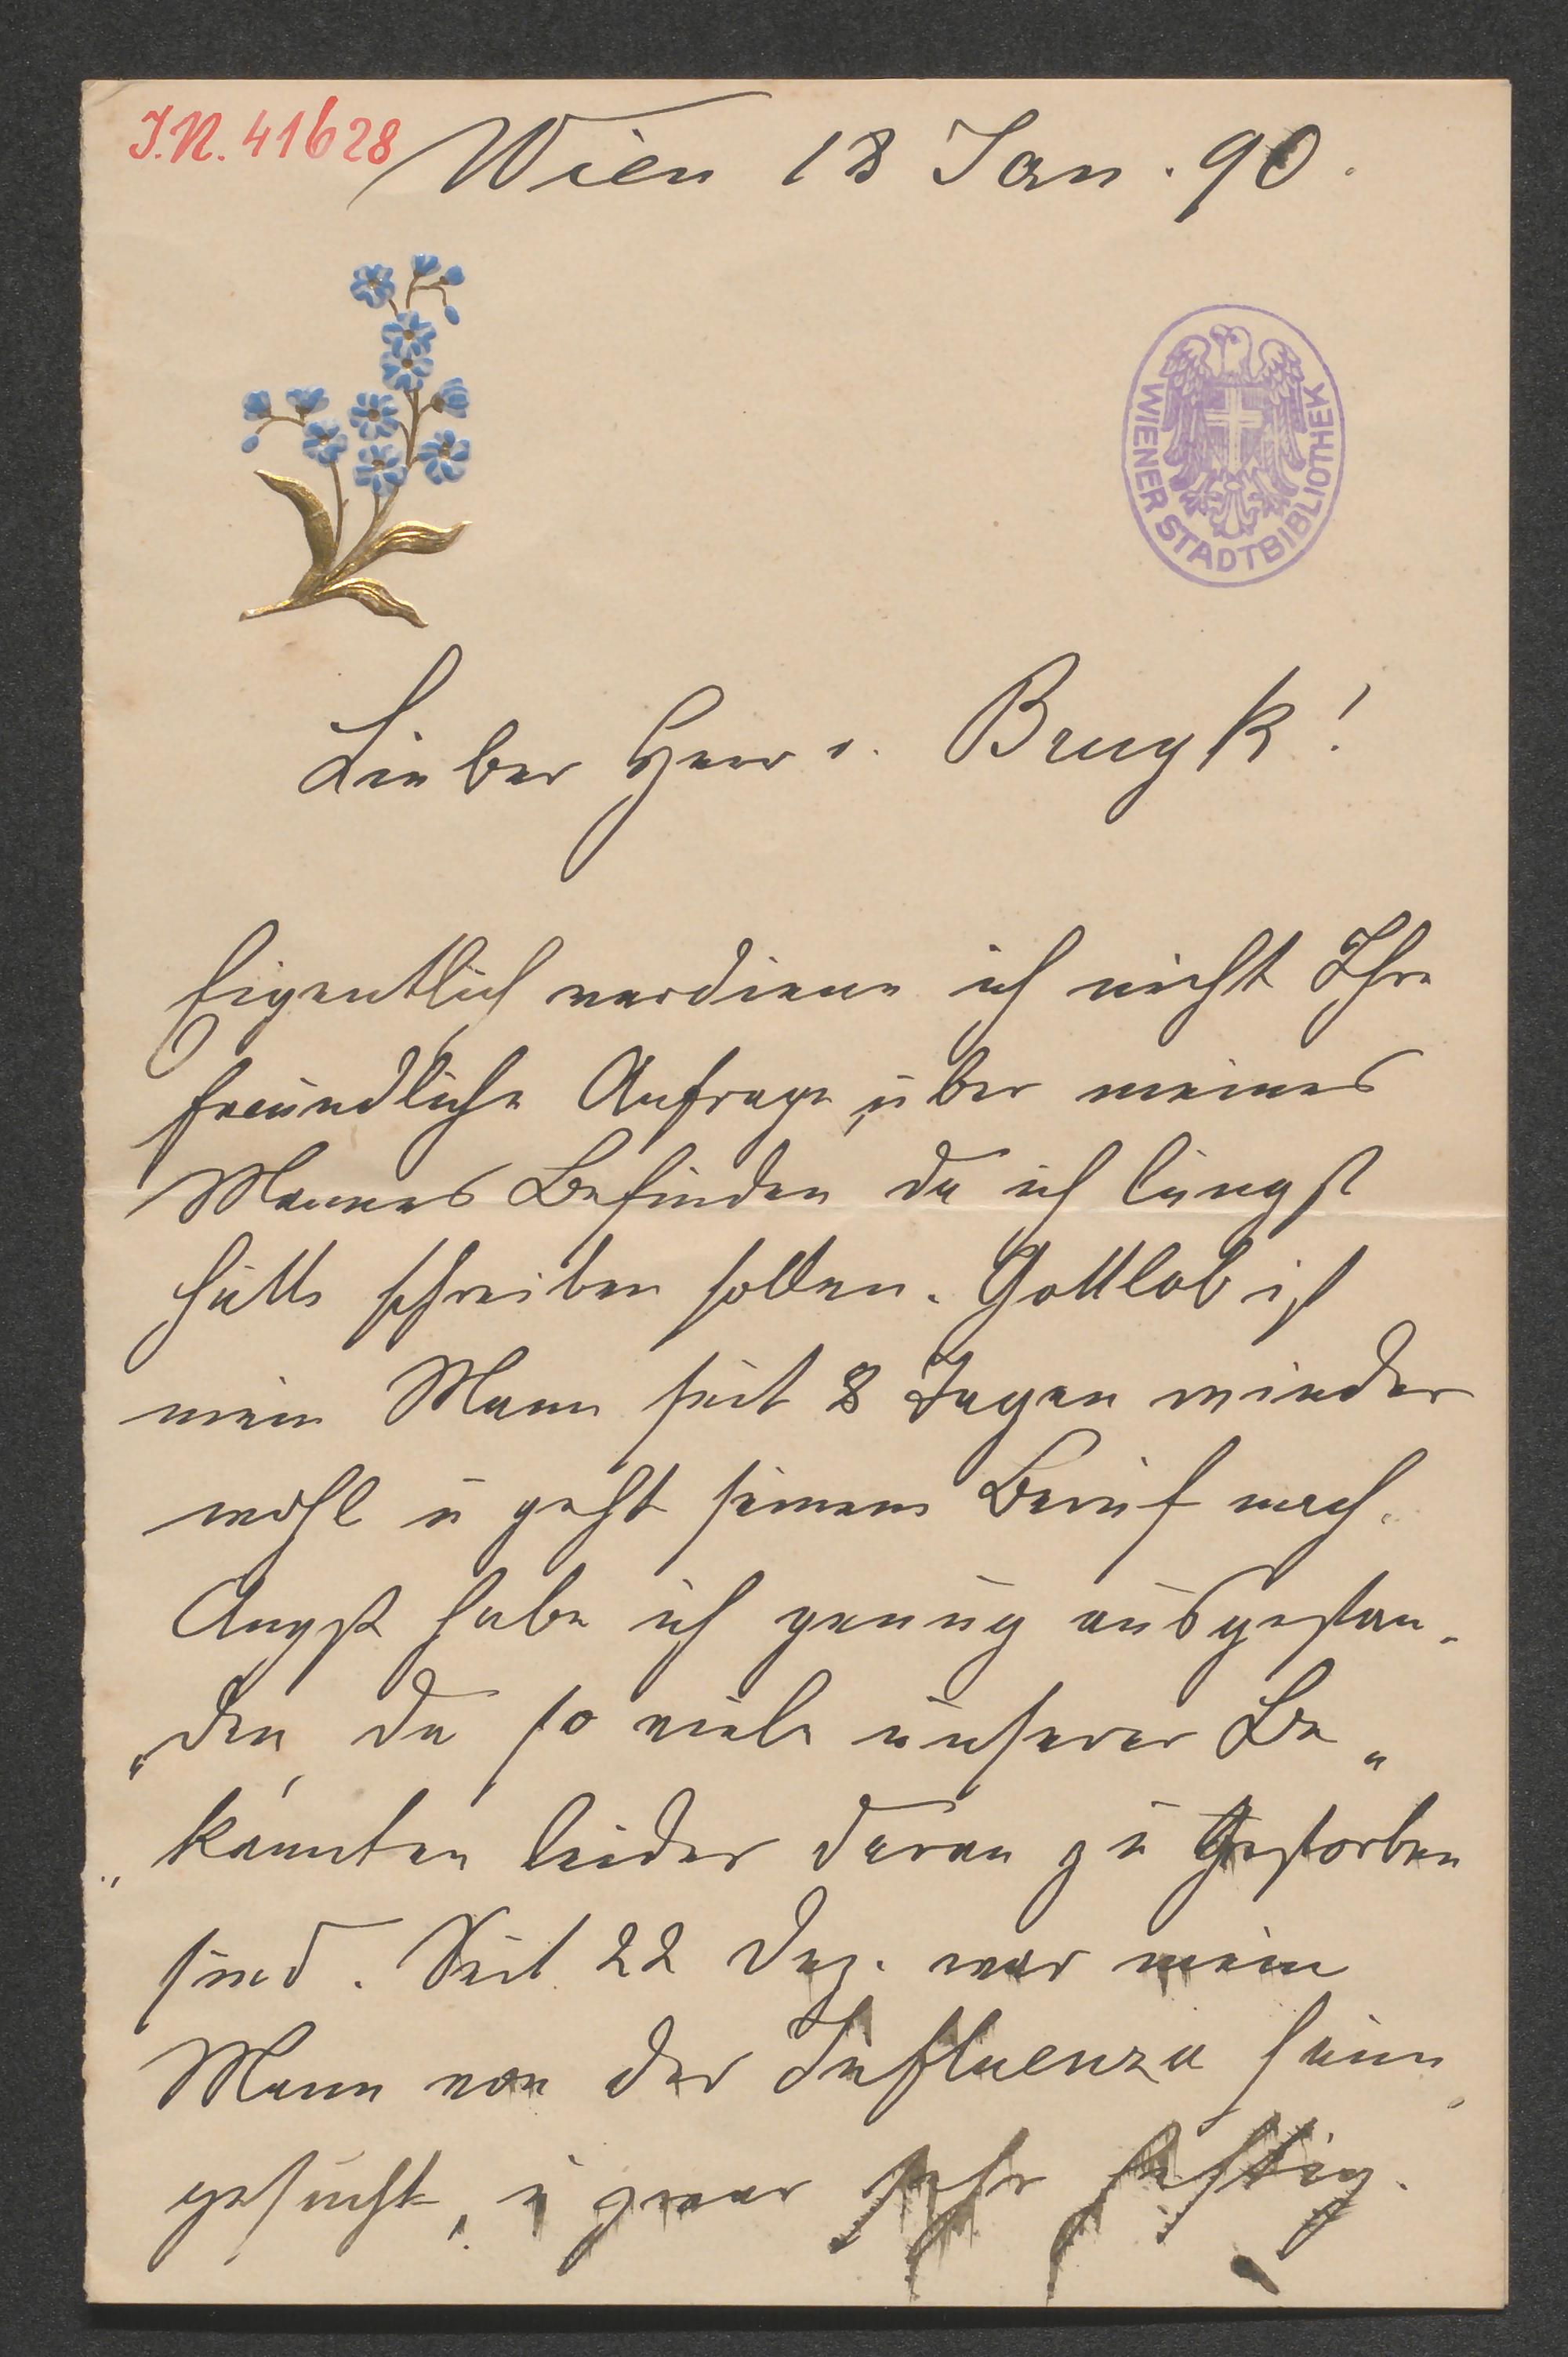 I.N. 41628
Wien 18 Jan. 90.
WIENER STADTBIBLIOTHEK
Lieber Herr v. Bruyk!
Eigentlich verdiene ich nicht Ihre
freundliche Anfrage über meines
Mannes Befinden da ich längst
hätte schreiben sollen. Gottlob ist
mein Mann seit 8 Tagen wieder
wohl u geht seinem Beruf nach.
Angst habe ich genug ausgestan-
„den, da so viele unserer Be„
„kannten leider daran zu Gestorben
sind. Seit 22 Dez. war mein
Mann von der Influenza heim
gesucht, u zwar sehr heftig.